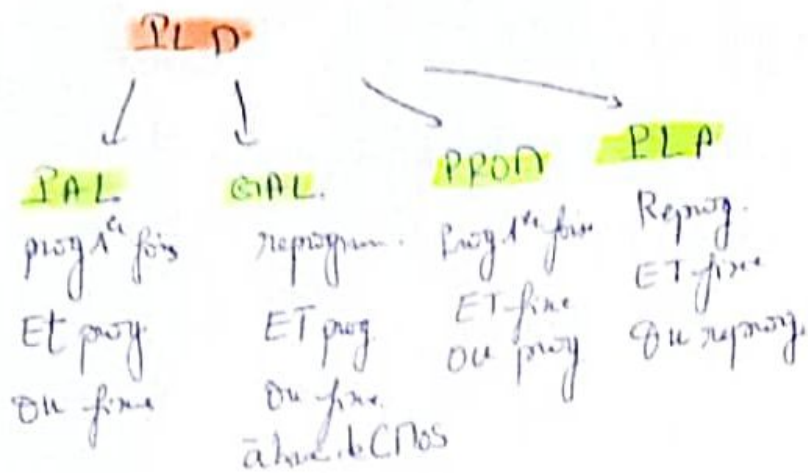 PLD
PAL
prog 1er fois
Et prog.
OU fixe
GAL.
reprogram.
ET prog.
OU fixe.
CMOS
PROM
Prog 1er fois
ET fixe
OU prog
PLA
Reprog.
ET fixe
OU reprog.